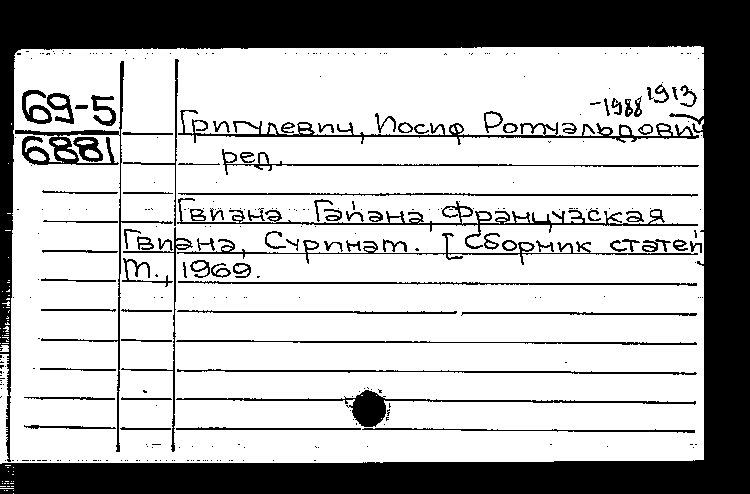 69-5
6881
-1988 1913
Григулевич, Иосиф Ромуальдович
ред.
Гвиана. Гайана, Французская
Гвиана, Суринам. [Сборник статей]
М., 1969.